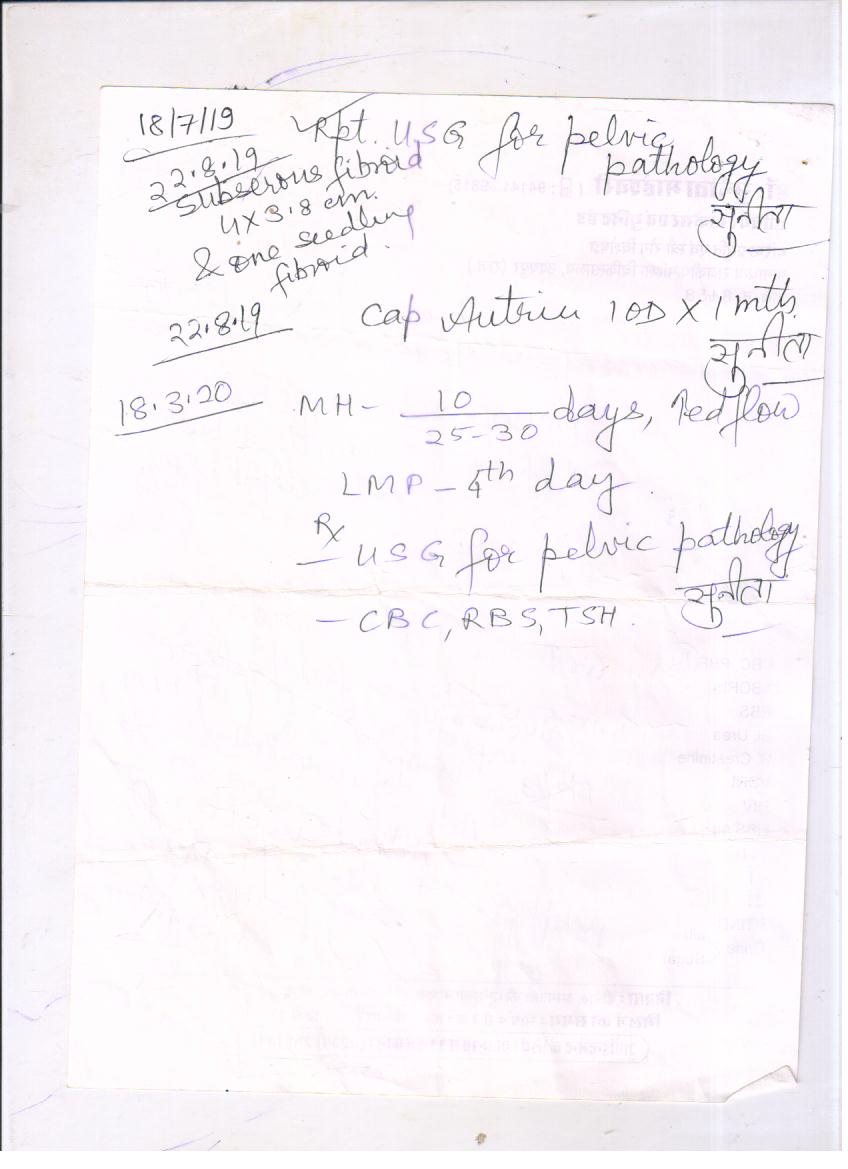 18/7/19
Rpt. USG for pelvic
pathology
सुनीता
22.8.19
Subserous fibroid
4X3.8 cm.
& one seedling
fibroid.
22.8.19
Cap Autrin 1OD X 1 mth.
सुनीता
18.3.20
MH- 10
25-30 days, flow
LMP - 4th day.
Rx
- USG for pelvic pathology
सुनीता
- CBC, RBS, TSH.